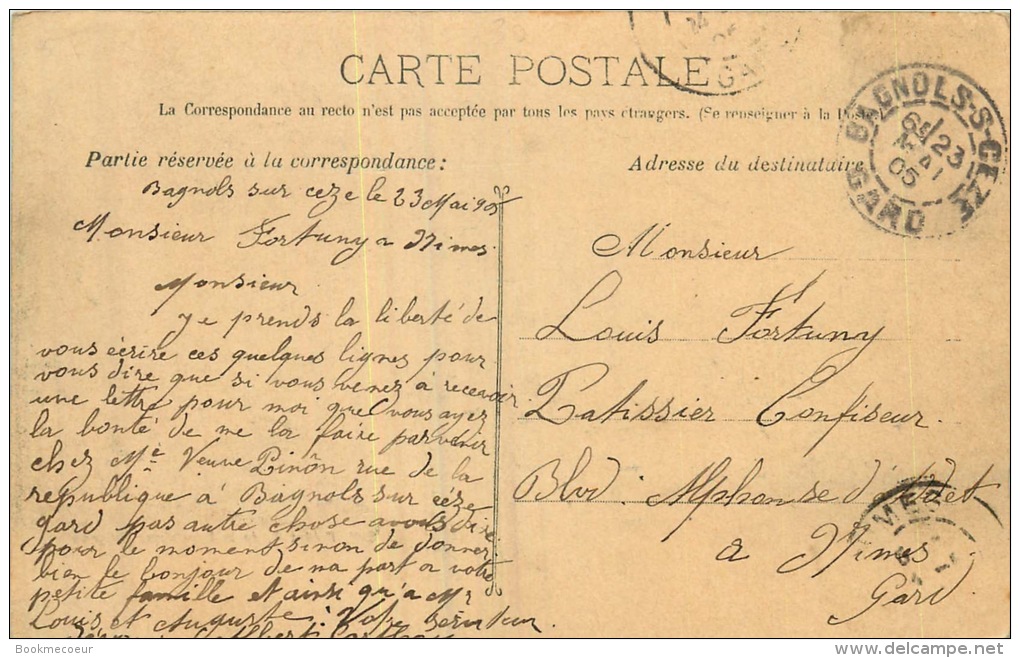 CARTE POSTALE
La Correspondance au recto n'est pas acceptée par tous les pays étrangers. (Se renseigner à la Poste
Partie réservée à la correspondance :
Adresse du destinataire
BAGNOLS-S-CEZE
23
MAI
05
GARD
Bagnols sur ceze le 23 Mai 905
Monsieur Fortuny a Nimes
Monsieur
Je prends la liberté de
vous écrire ces quelques lignes pour
vous dire que si vous venez à recevoir
une lettre pour moi que vous ayez
la bonté de me la faire parvenir
chez Me Veuve Pinôn rue de la
republique à Bagnols sur céze
gard pas autre chose a vous dire
pour le moment sinon de donner
bien le bonjour de ma part a votre
petite famille et ainsi qu'a Mr
Louis et Auguste. Votre serviteur.
Albert
Monsieur
Louis Fortuny
Patissier Confiseur
Blvd. Alphonse daudet
a Nimes
Gard.
Bookmecoeur
delcampe.net